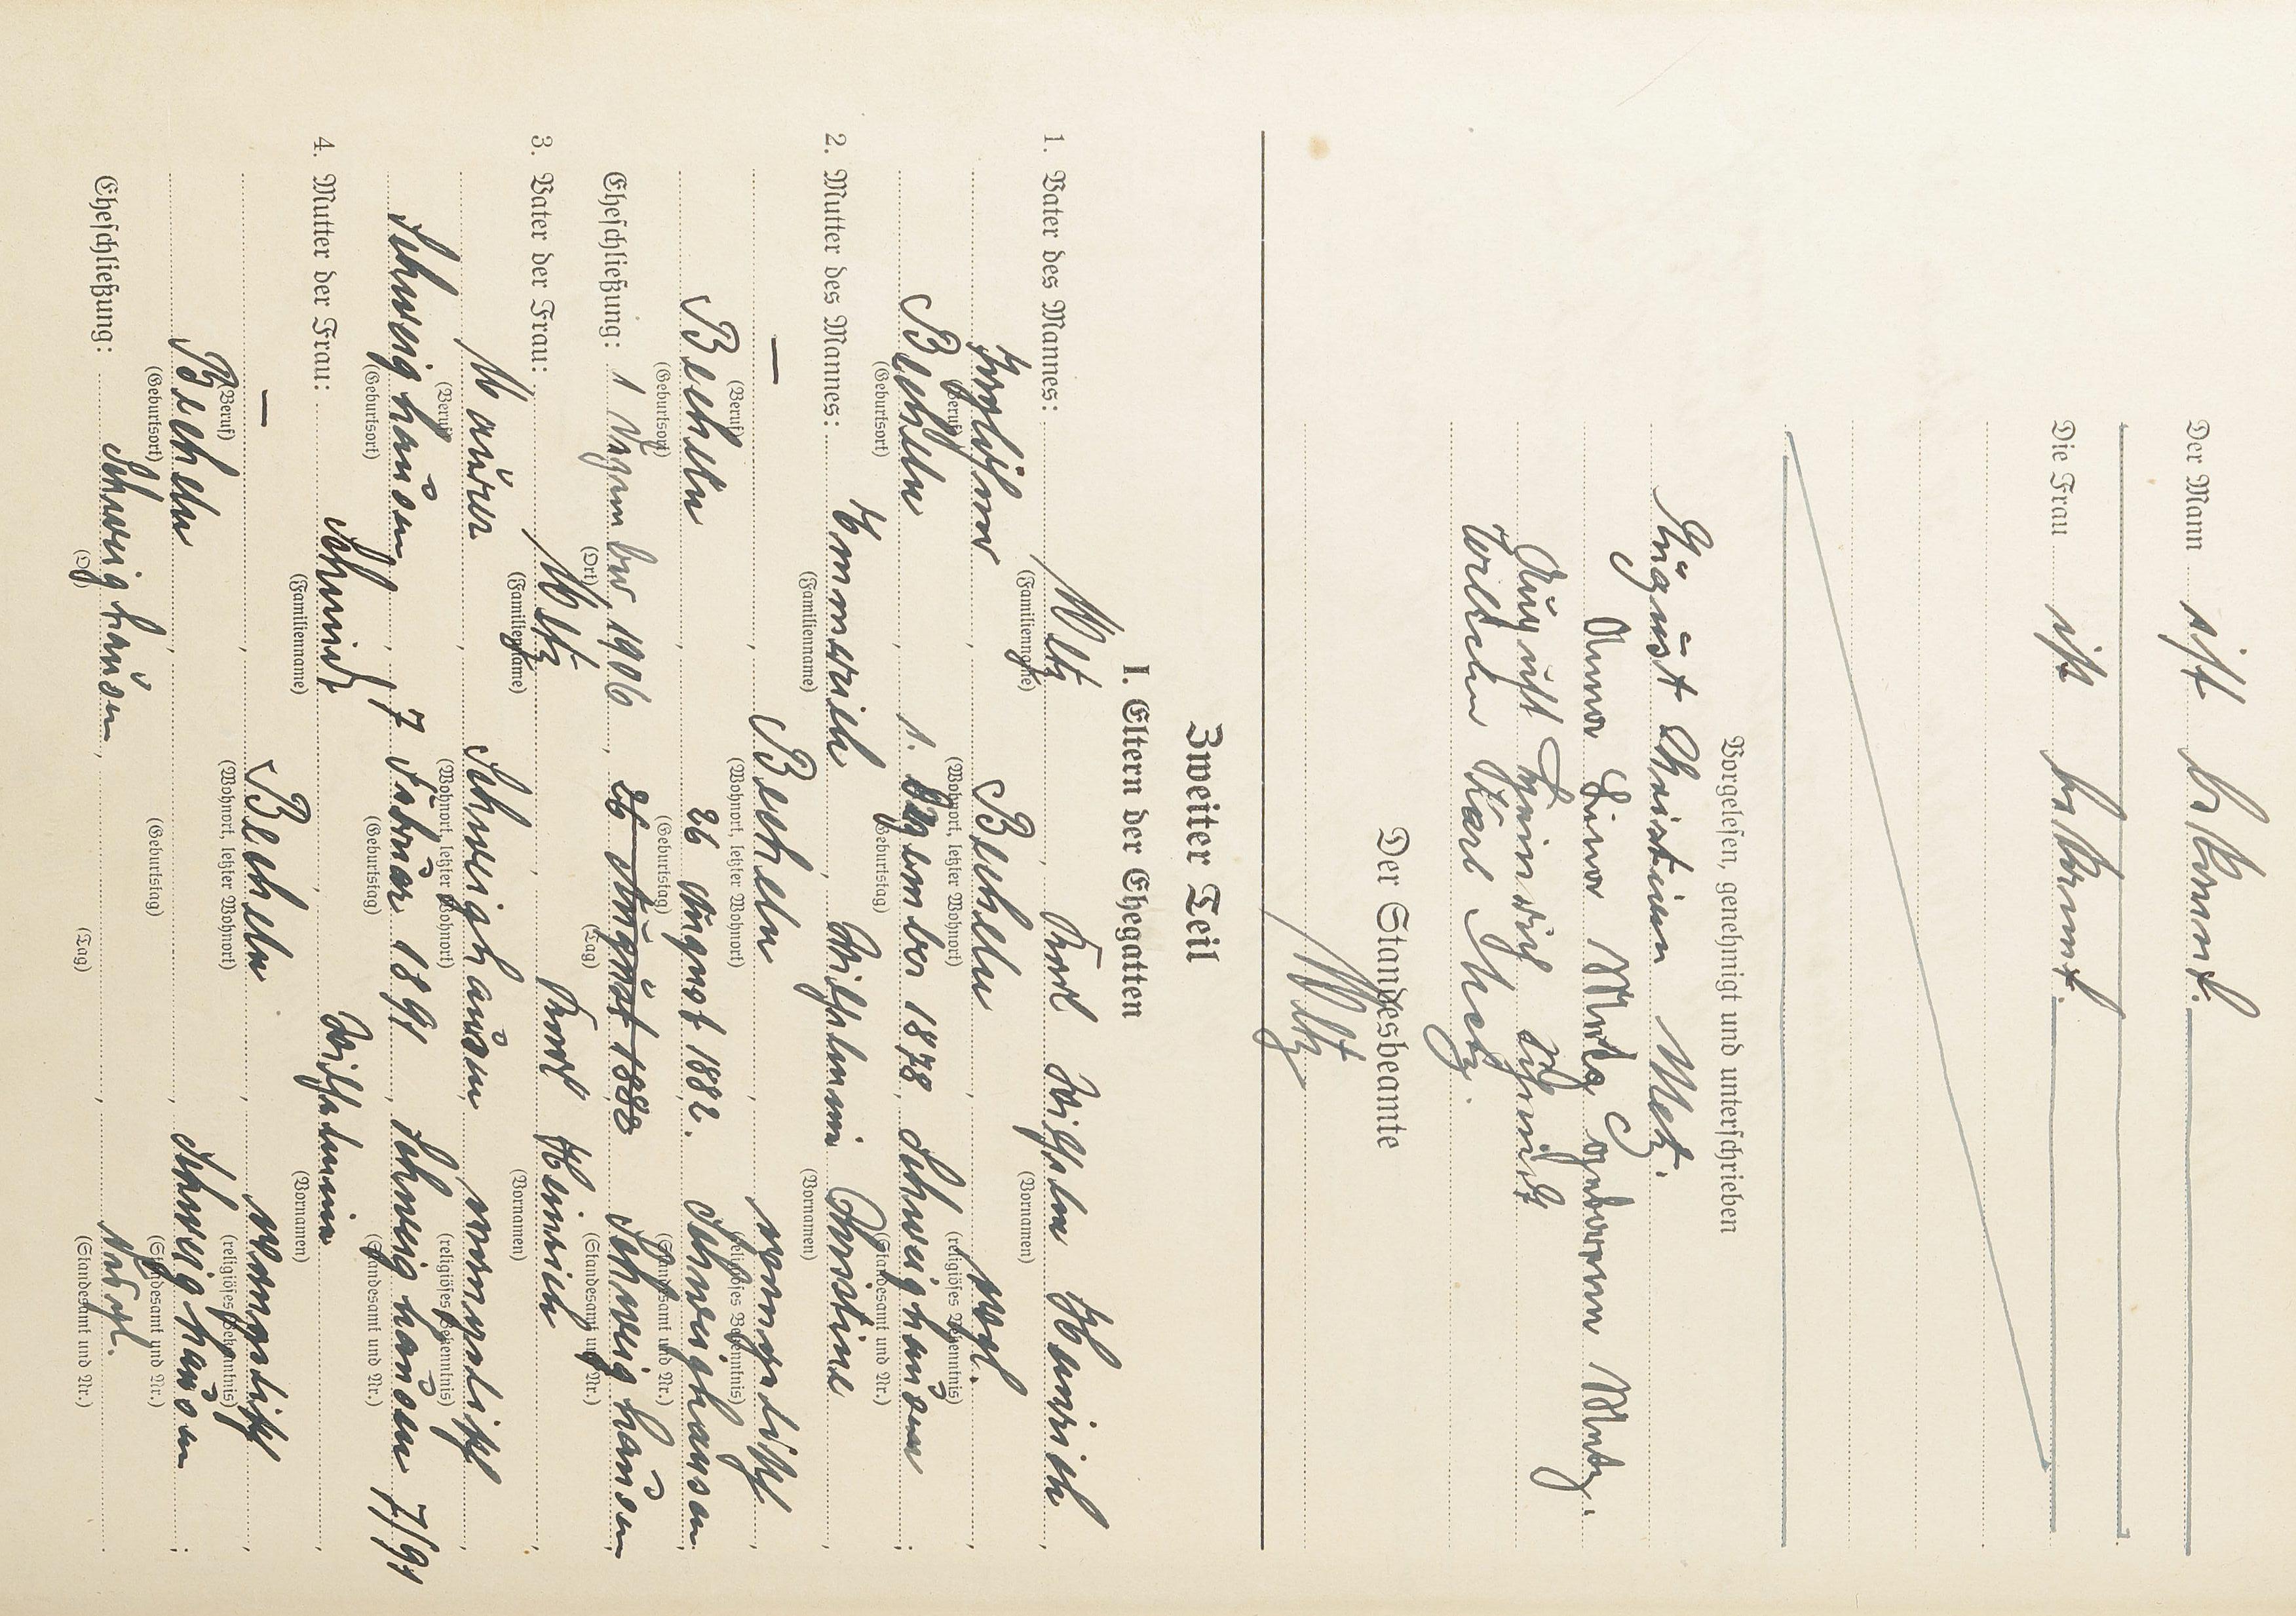 Der Mann ist bekannt.
Die Frau ist bekannt.
Vorgelesen, genehmigt und unterschrieben
August Christian Metz.
Anna Lina Metz geborene Metz.
August Heinrich Schmidt
Wilhelm Karl Metz.
Der Standesbeamte
Metz
Zweiter Teil
I. Eltern der Ehegatten
1. Vater des Mannes: Metz, Karl Wilhelm Heinrich,
(Familienname) (Vornamen)
Becheln, evgl.,
(Beruf) (Wohnort, letzter Wohnort) (religiöses Bekenntnis)
Becheln, 1. Dezember 1878, Schweighausen;
(Geburtsort) (Geburtstag) (Standesamt und Nr.)
2. Mutter des Mannes: Emmerich, Wilhelmine Christine,
(Familienname) (Vornamen)
—, Becheln, evangelisch,
(Beruf) (Wohnort, letzter Wohnort) (religiöses Bekenntnis)
Becheln, 26 August 1882. Schweighausen
(Geburtsort) (Geburtstag) (Standesamt und Nr.)
Eheschließung: 1 Dezember 1906, 26 August 1882 Schweighausen
(Ort) (Tag) (Standesamt und Nr.)
3. Vater der Frau: Metz, Karl Heinrich,
(Familienname) (Vornamen)
Maurer, Schweighausen, evangelisch,
(Beruf) (Wohnort, letzter Wohnort) (religiöses Bekenntnis)
Schweighausen, 17 Februar 1891, Schweighausen 7/91
(Geburtsort) (Geburtstag) (Standesamt und Nr.)
4. Mutter der Frau: Schmidt, Wilhelmine,
(Familienname) (Vornamen)
—, Becheln, evangelisch,
(Beruf) (Wohnort, letzter Wohnort) (religiöses Bekenntnis)
Becheln, Schweighausen;
(Geburtsort) (Geburtstag) (Standesamt und Nr.)
Eheschließung: Schweighausen,
(Ort) (Tag) (Standesamt und Nr.)